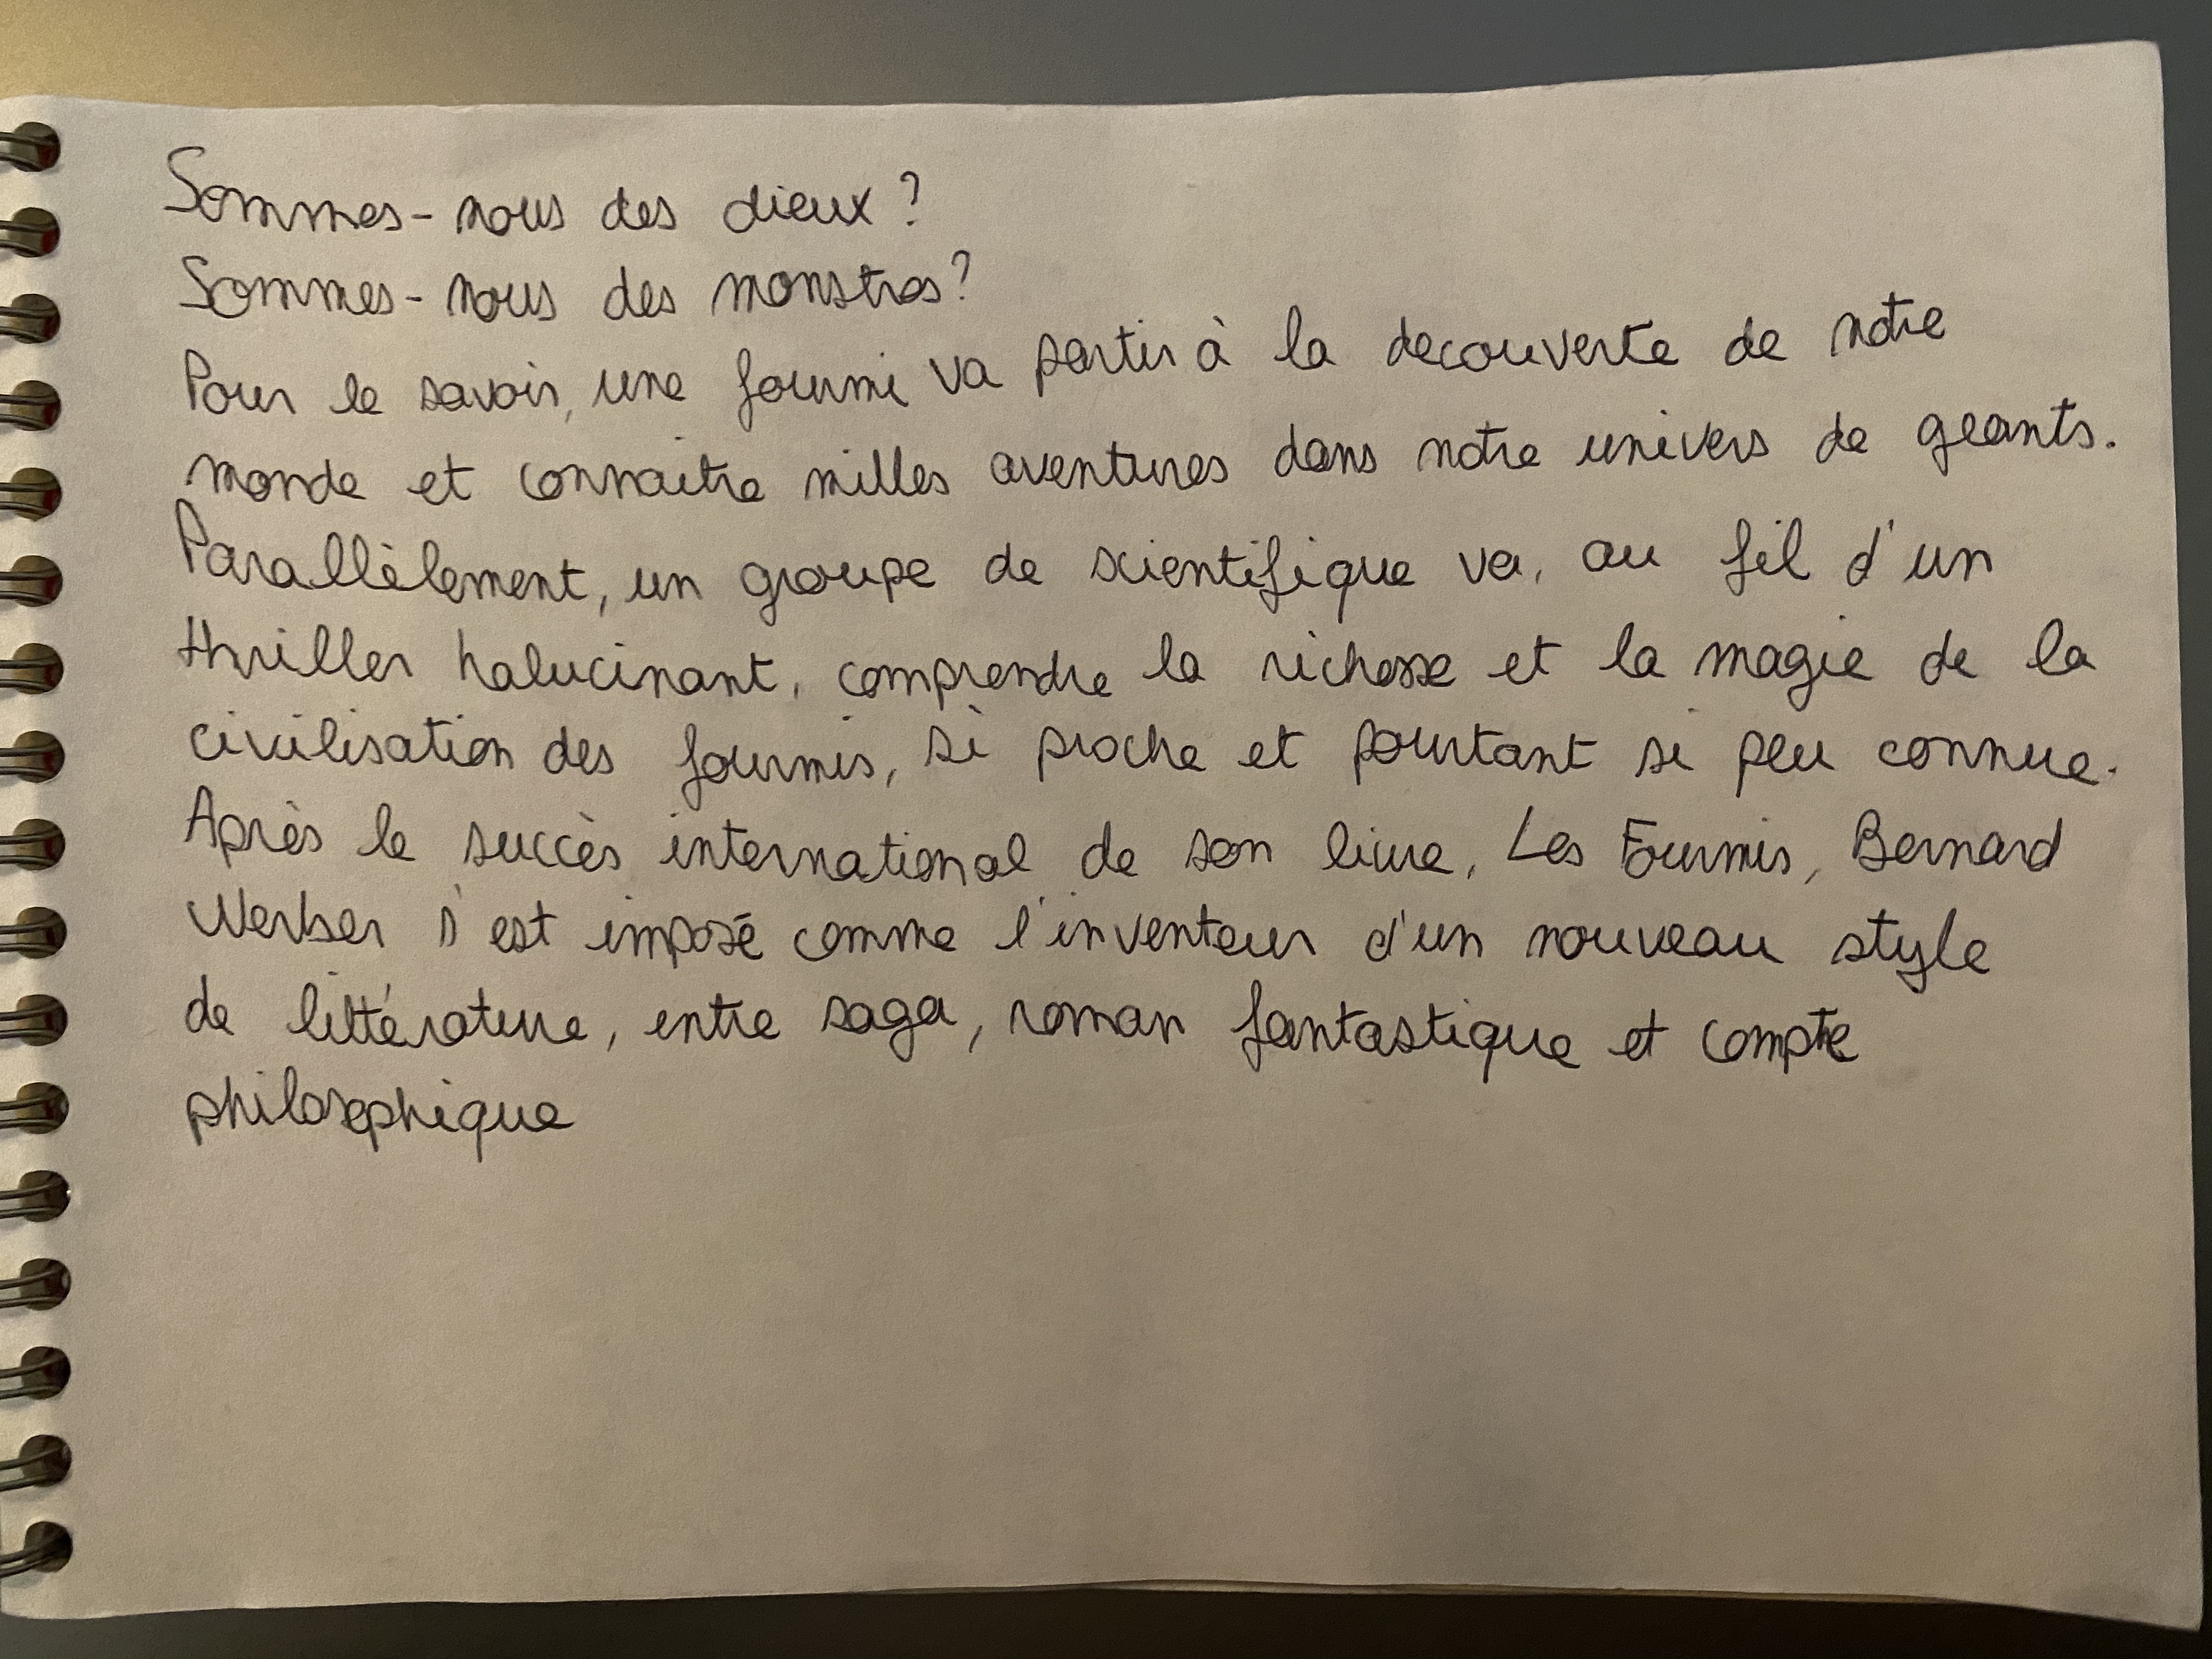 Sommes-nous des dieux ?
Sommes-nous des monstres ?
Pour le savoir, une fourmi va partir à la decouverte de notre
monde et connaitre milles aventures dans notre univers de geants.
Parallèlement, un groupe de scientifique va, au fil d'un
thriller halucinant, comprendre la richesse et la magie de la
civilisation des fourmis, si proche et pourtant si peu connue.
Après le succès international de son livre, Les Fourmis, Bernard
Werber s'est imposé comme l'inventeur d'un nouveau style
de littérature, entre saga, roman fantastique et compte
philosophique